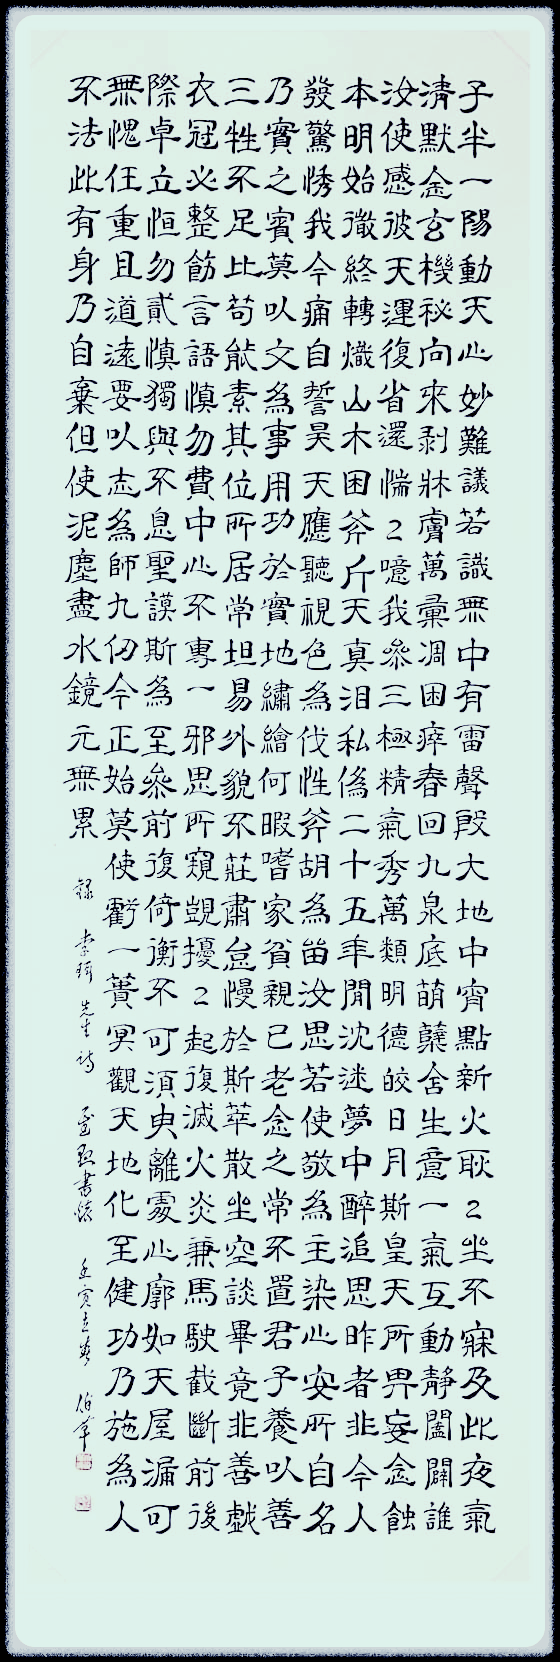 子半一陽動天心妙難議若識無中有雷聲殷大地中宵點新火耿2坐不寐及此夜氣
清默念玄機秘向來剥牀膚萬彙凋困瘁春回九泉底萌蘖含生意一氣互動靜闔闢誰
汝使感彼天運復省還惴2噫我參三極精氣秀萬類明德皎日月斯皇天所畀妄念蝕
本明始微終轉熾山木困斧斤天真汨私僞二十五年間沈迷夢中醉追思昨者非今人
發驚悸我今痛自誓昊天應聽視色為伐性斧胡為甾汝思若使敬為主染心安所自名
乃實之賓莫以文為事用功於實地繡繪何暇嗜家貧親已老念之常不置君子養以善
三牲不足比苟能素其位所居常坦易外貌不莊肅怠慢於斯萃散坐空談畢竟非善戲
衣冠必整飭言語慎勿費中心不專一邪思所窺覬擾2起復滅火炎兼馬駛截斷前後
際卓立恒勿貳慎獨與不息聖謨斯為至參前復倚衡不可須臾離處心廓如天屋漏可
無愧任重且道遠要以志為師九仞今正始莫使虧一簣冥觀天地化至健功乃施為人
不法此有身乃自棄但使泥塵盡水鏡元無累
錄 李 先生诗 至夜書懷 壬寅立春 伯華